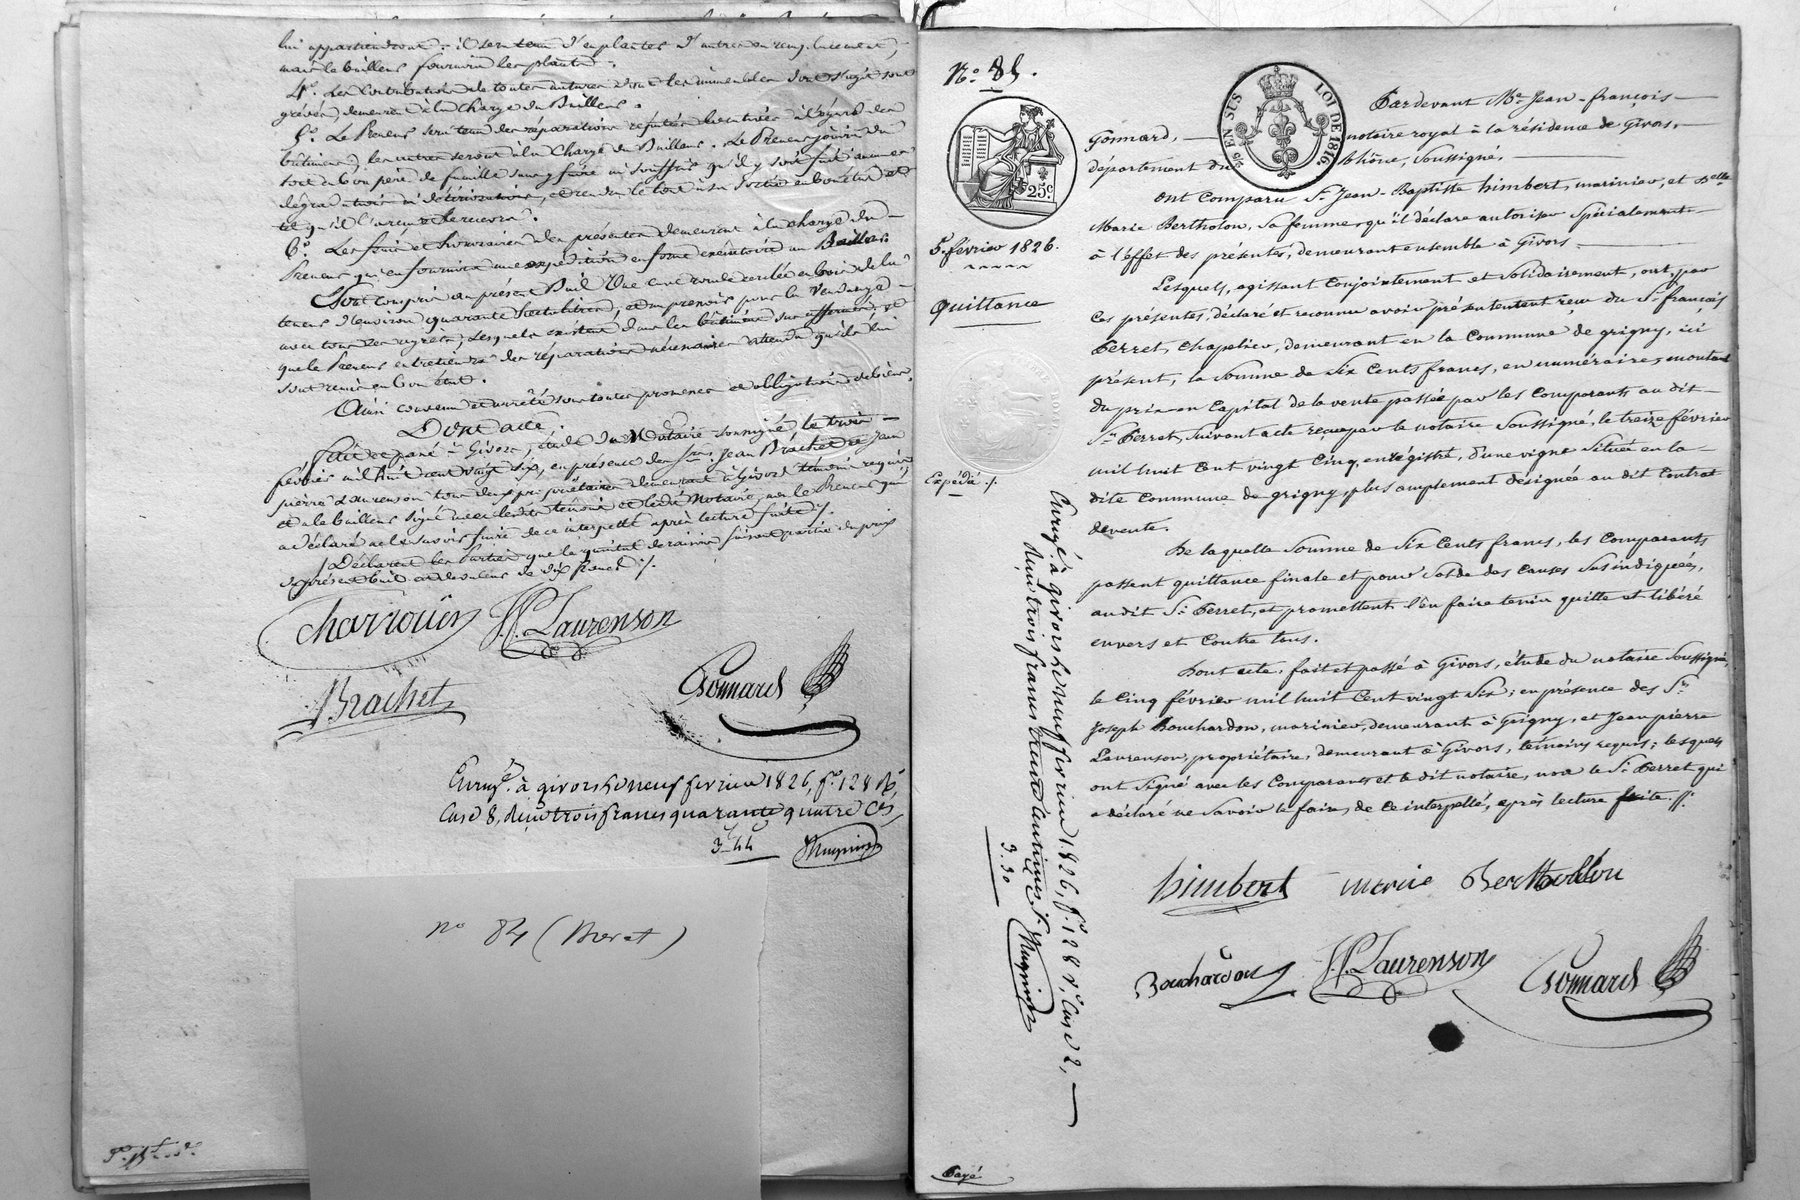 lui appartiendront ; il sera tenu d'en planter d'autres en remplacement,
mais le bailleur fournira les plants.
4°. Les contributions de toutes natures dont les immeubles dont s'agit sont
grévés, demeurent à la charge du Bailleur.
5°. Le Preneur sera tenu des réparations réputées locatives à l'égard des
bâtiments, les autres seront à la charge du Bailleur. Le Preneur jouira du
tout en bon père de famille sans y faire ni souffrir qu'il y soit fait aucunes
dégradations ni détériorations, et rendra le tout à sa sortie en bon état et
tel qu'il l'aura reçu.
6°. Les frais et honoraires des présentes demeurent à la charge du
Preneur qui en fournira une expédition en forme exécutoire au Bailleur.
Sont compris au présent Bail une cuve ronde cerclée en bois de la
teneur d'environ quarante hectolitres, et un pressoir pour la vendange
avec tous ses agrès, lesquels existent dans les bâtiments sus affermés, et
que le Preneur entretiendra des réparations nécessaires attendu qu'ils lui
sont remis en bon état.
Ainsi convenu et arrêté sous toutes promesses et obligations de biens.
Dont acte.
Fait et passé à Givors, étude du Notaire soussigné le trois
février mil huit cent vingt six, en présence des Srs. Jean Brachet et Jean
pierre Laurenson tous deux propriétaires demeurant à Givors témoins requis,
et a le bailleur signé avec lesdits témoins et ledit Notaire, non le Preneur qui
a déclaré ne le savoir faire de ce interpellé après lecture faite /.
/ Déclarent les parties que la quantité de raisins faisant partie du prix
du présent bail est de valeur de dix francs /.
Charrouin J.P. Laurenson
Brachet Gomard
Enregé. à givors le neuf fevrier 1826, f° 128 R°,
Case 8, reçu trois francs quarante quatre Cs,
3-44 Mugnier
n° 84 (Neret)
N°. 85.
25c.
EN SUS
LOI DE 1816.
5 février 1826.
Quittance
Expédié /.
Enregé. à givors le neuf fevrier 1826, f° 128 v°, Case 2,
Reçu trois francs trente Centimes /. Mugnier
3.30
Pardevant Me. Jean-françois
Gomard, notaire royal à la résidence de Givors,
département du Rhône, soussigné,
Ont comparu Sr. Jean-Baptiste himbert, marinier, et Delle
Marie Bertholon, sa femme, qu'il déclare autoriser spécialement
à l'effet des présentes, demeurant ensemble à Givors
Lesquels, agissant conjointement et solidairement, ont, par
ces présentes, déclaré et reconnu avoir présentement reçu du Sr. françois
Perret, chapelier, demeurant en la Commune de grigny, ici
présent, la somme de six cents francs, en numéraire, montant
du prix en capital de la vente passée par les comparants au dit
Sr. Perret, suivant acte reçu par le notaire soussigné, le treize février
mil huit cent vingt cinq, enrégistré, d'une vigne située en la
dite commune de grigny, plus amplement désignée au dit contrat
de vente.
De laquelle somme de six cents francs, les comparants
passent quittance finale et pour solde des causes sus indiquées,
au dit Sr. Perret, et promettent l'en faire tenir quitte et libéré
envers et contre tous.
Dont acte, fait et passé à Givors, étude du notaire soussigné,
le cinq février mil huit cent vingt six; en présence des Srs.
Joseph Bouchardon, marinier, demeurant à Grigny, et Jean pierre
Laurenson, propriétaire, demeurant à Givors, témoins requis; lesquels
ont signé avec les comparants et le dit notaire, non le Sr. Perret qui
a déclaré ne savoir le faire, de ce interpellé, après lecture faite /.
himbert marie Berthollon
Bouchardon J.P. Laurenson Gomard
Payé